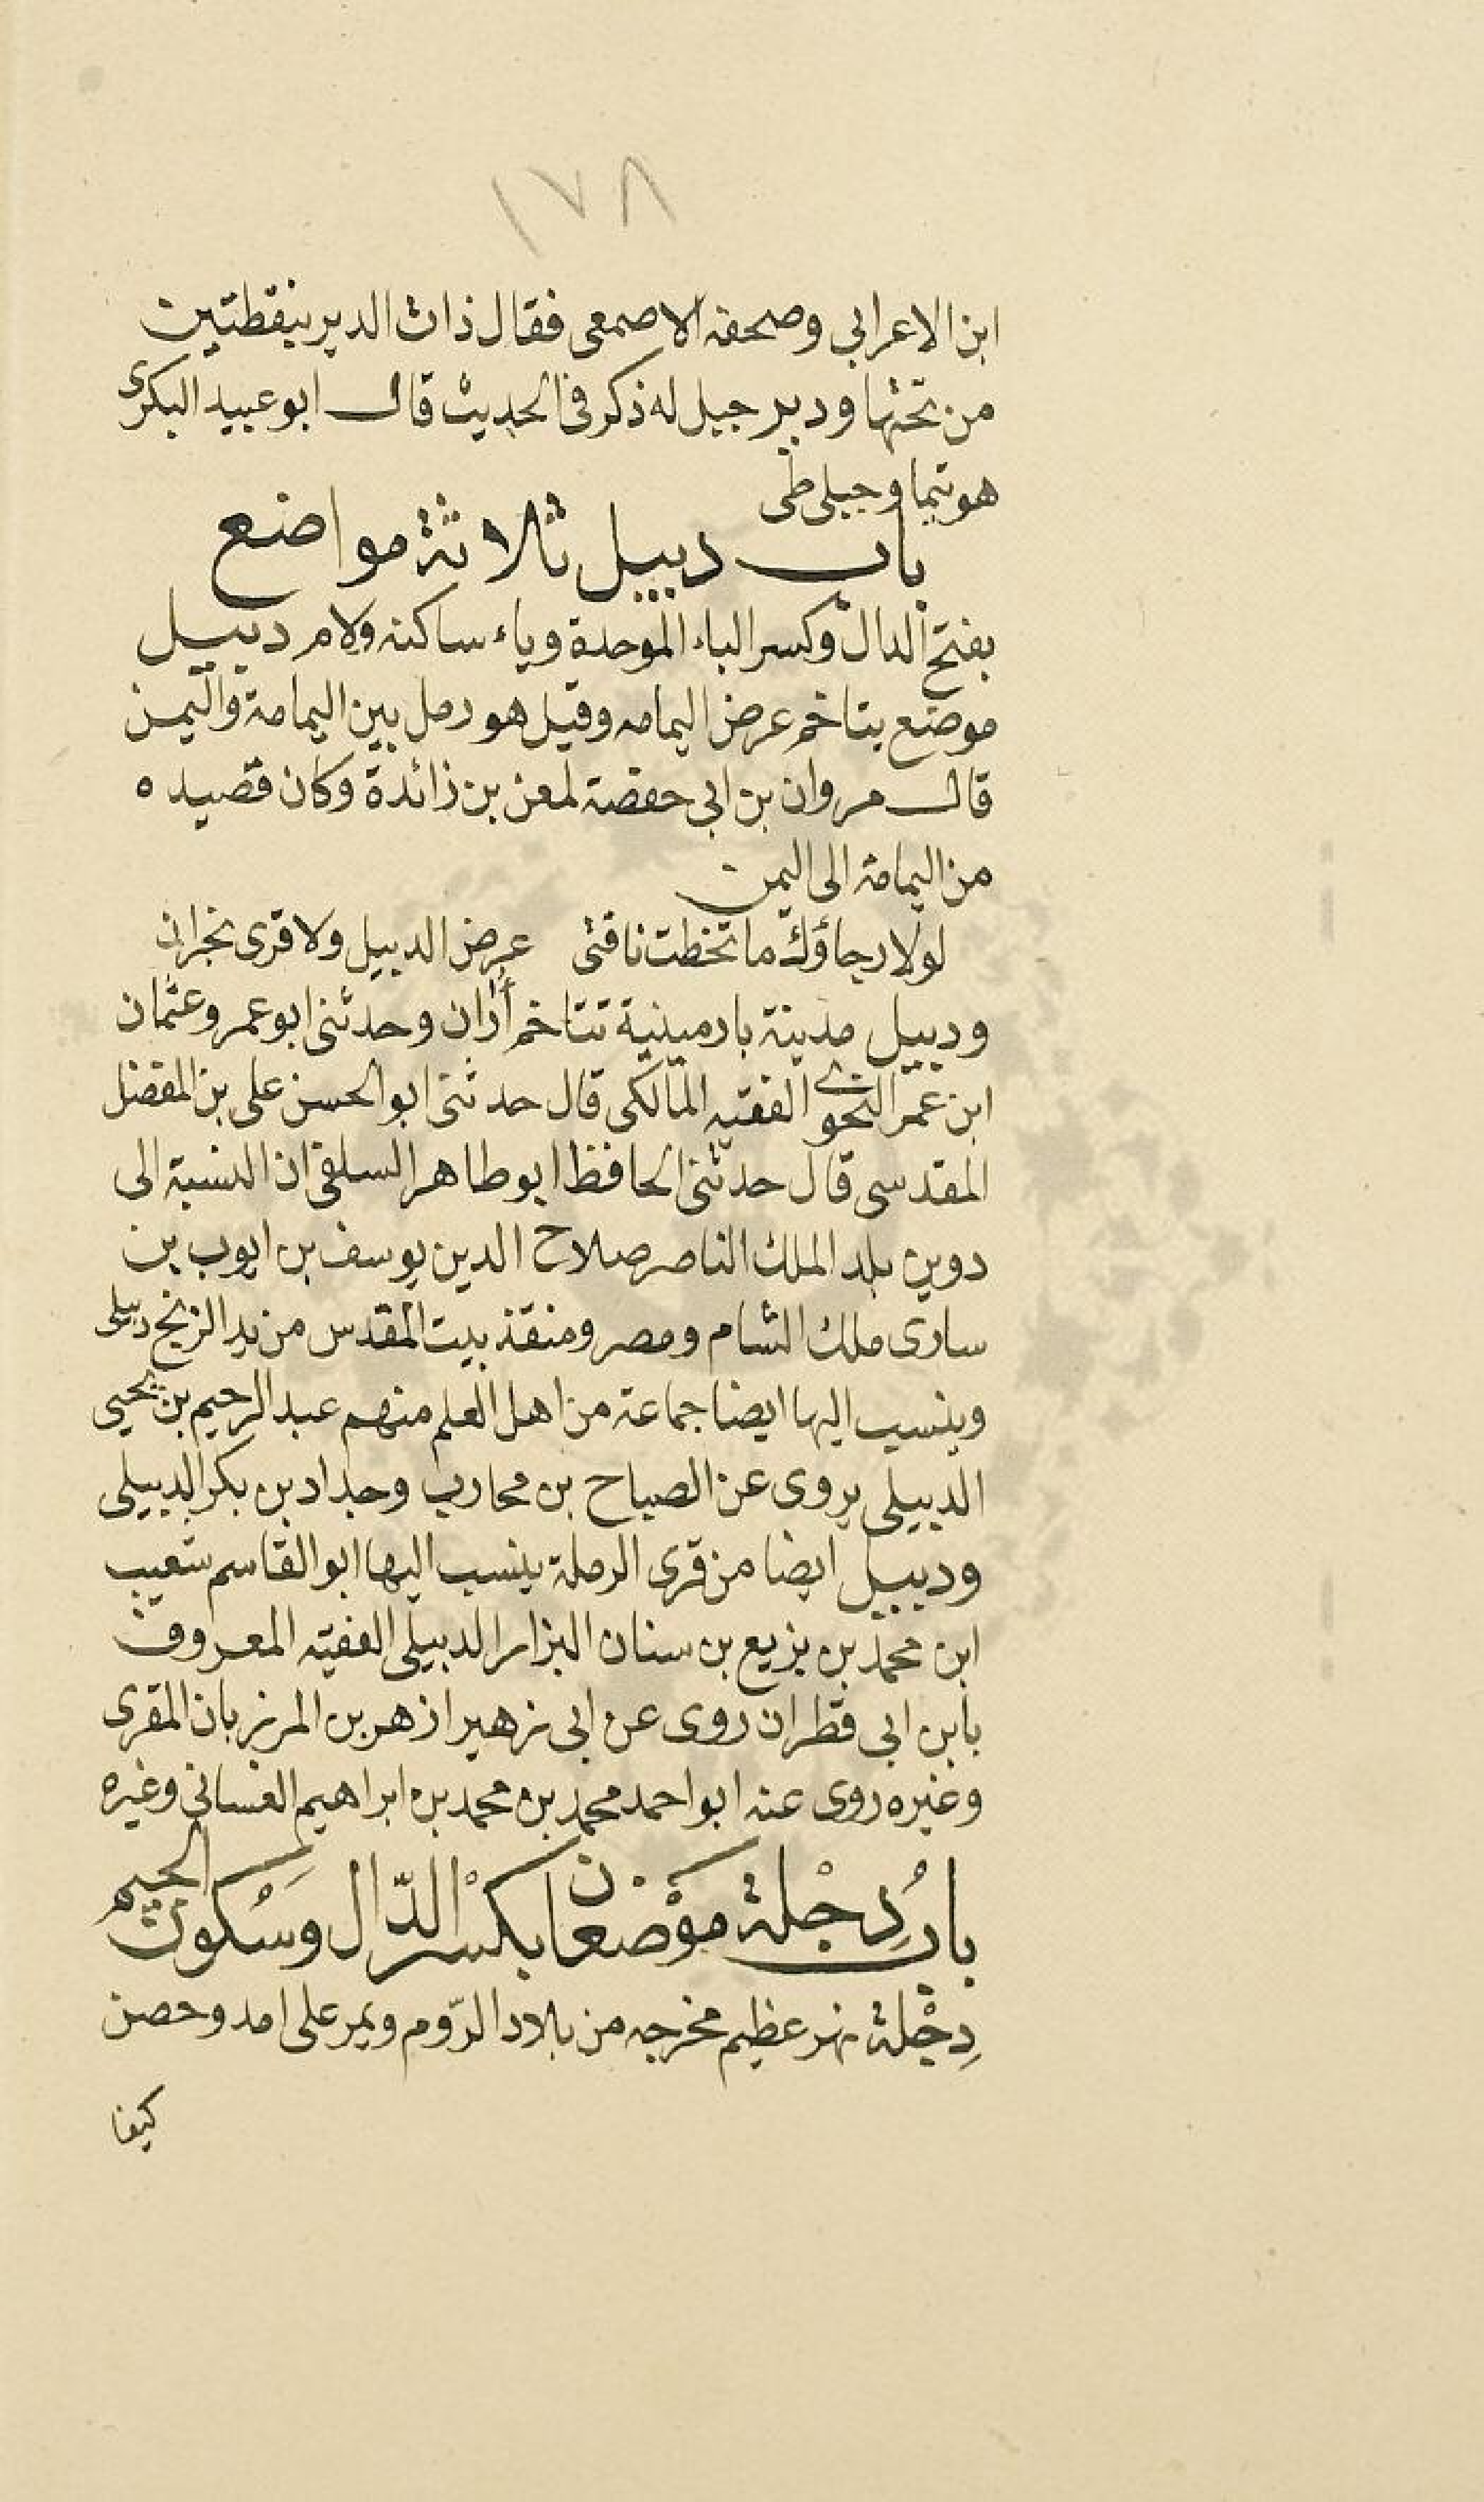 ١٧٨
ابن الاعرابي وصحفه الاصمعى فقال ذات الدير بنقطتين
من تحتها ودبر جبل له ذكر فى الحديث قال ابو عبيد البكرى
هو تيما وجبلى طى
باب دبيل ثلاثة مواضع
بفتح الدال وكسر الباء الموحدة وياء ساكنه ولام دبيل
موضع يتاخم عرض اليمامه وقيل هو رمل بين اليمامة واليمن
قال مروان بن ابى حفصة لمعن بن زائدة وكان قصيده
من اليمامة الى اليمن
لولا رجاؤك ما تخطت ناقتى عرض الدبيل ولا قرى نجران
ودبيل مدينة بارمينية تتاخم أران وحدثنى ابو عمر وعثمان
ابن عمر النحوى الفقيه المالكى قال حدثنى ابو الحسن على بن المفضل
المقدسى قال حدثنى الحافظ ابو طاهر السلفى ان النسبة الى
دوين بلد الملك الناصر صلاح الدين يوسف بن ايوب بن
سارى ملك الشام ومصر ومنقذ بيت المقدس من يد الزنج دبيلى
وينسب اليها ايضا جماعة من اهل العلم منهم عبد الرحيم بن يحيى
الدبيلى يروى عن الصباح بن محارب وجداد بن بكر الدبيلى
ودبيل ايضا من قرى الرملة ينسب اليها ابو القاسم شعيب
ابن محمد بن بزيع بن سنان البزار الدبيلى الفقيه المعروف
بابن ابى قطران روى عن ابى زهير ازهر بن المرزبان المقرى
وغيره روى عنه ابو احمد محمد بن محمد بن ابراهيم الغسانى وغيره
بابُ دِجْلة مَوْضعان بكسْر الدّال وسَكُون الجيم
دِجْلة نهر عظيم مخرجه من بلاد الرّوم ويمر على امد وحصن
كيفا